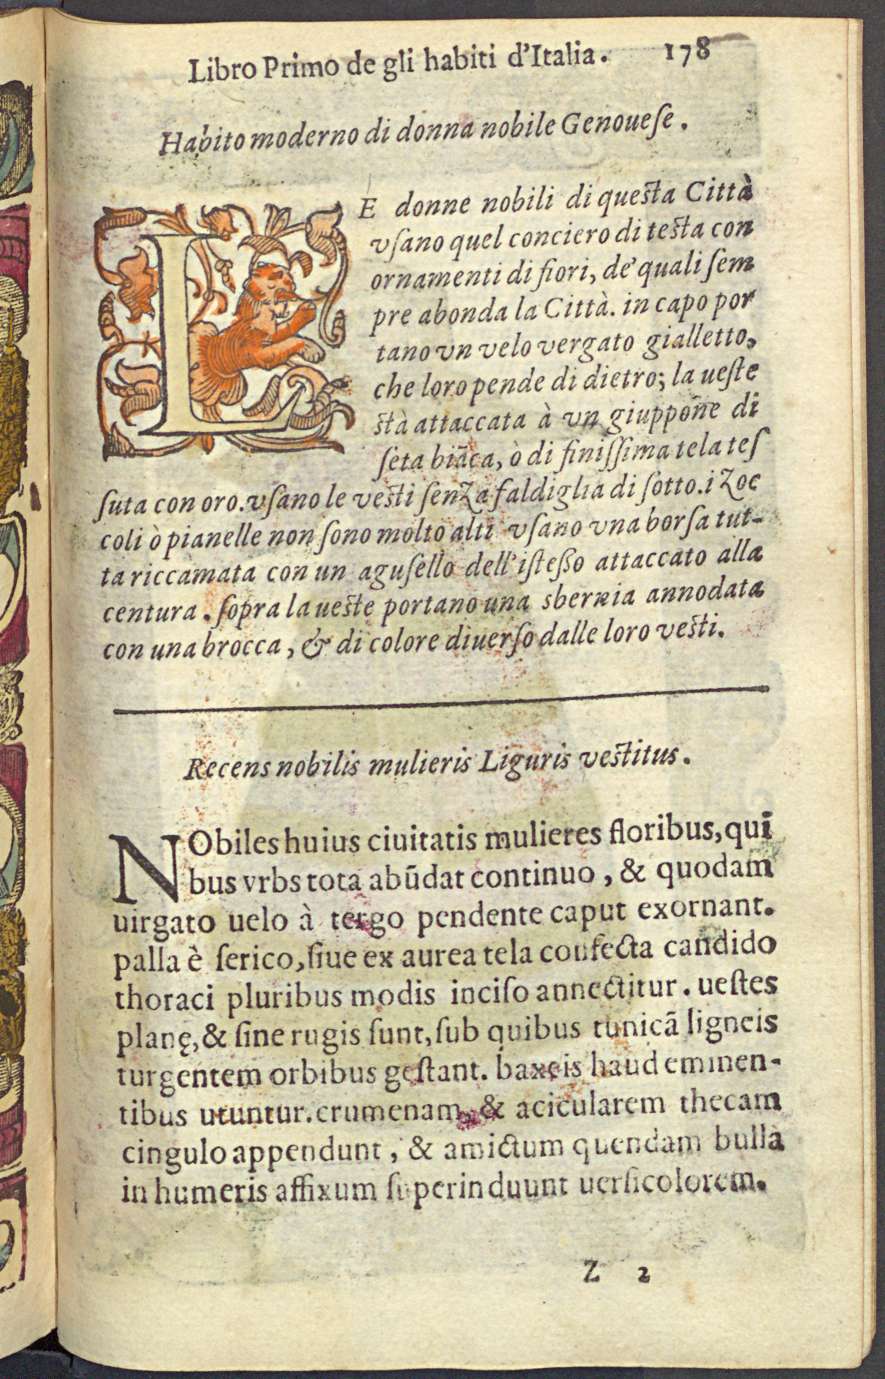 Libro Primo de gli habiti d'Italia. 178
Habito moderno di donna nobile Genouese.
LE donne nobili di questa Città
vsano quel conciero di testa con
ornamenti di fiori, de' quali sem
pre abonda la Città. in capo por
tano vn velo vergato gialletto,
che loro pende di dietro; la ueste
stà attaccata à vn giuppone di
seta biāca, ò di finissima tela tes
suta con oro. vsano le vesti senza faldiglia di sotto. i Zoc
coli ò pianelle non sono molto alti vsano vna borsa tut-
ta riccamata con un agusello dell'istesso attaccato alla
centura. sopra la ueste portano una sbernia annodata
con una brocca, & di colore diuerso dalle loro vesti.
Recens nobilis mulieris Liguris vestitus.
NObiles huius ciuitatis mulieres floribus, qui
bus vrbs tota abūdat continuo, & quodam
uirgato uelo à tergo pendente caput exornant.
palla è serico, siue ex aurea tela confecta candido
thoraci pluribus modis inciso annectitur. uestes
planę, & sine rugis sunt, sub quibus tunicā ligneis
turgentem orbibus gestant. baxeis haud eminen-
tibus utuntur. crumenam, & acicularem thecam
cingulo appendunt, & amictum quendam bulla
in humeris affixum superinduunt uersicolorem.
Z 2